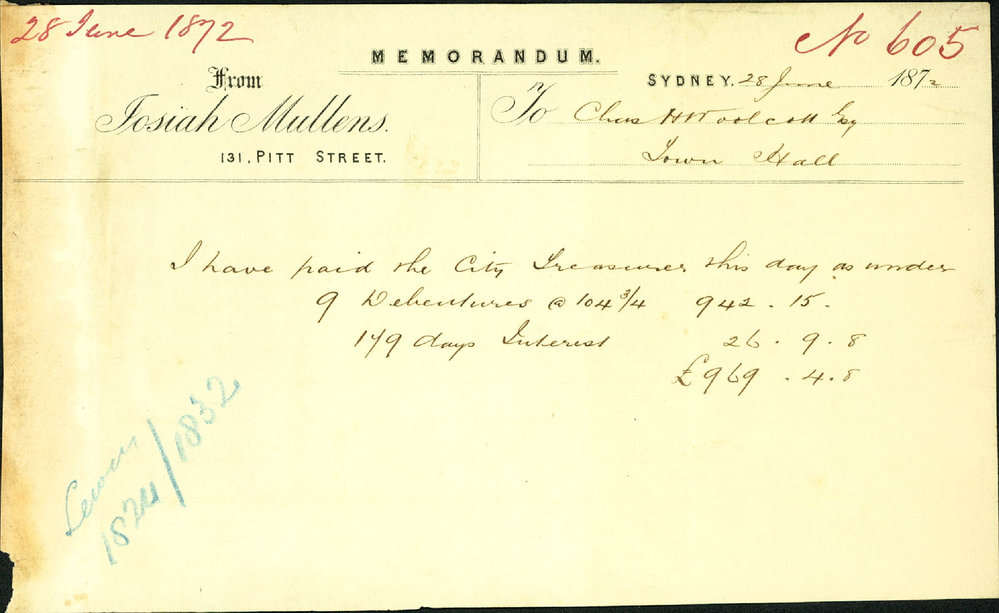 28 June 1872
No 605
MEMORANDUM.
From
Josiah Mullens.
131, PITT STREET.
SYDNEY, 28 June 1872
To Chas H Woolcott Esq
Town Hall
I have paid the City Treasurer this day as under
9 Debentures @ 104 3/4 942 . 15 .
179 days Interest 26 . 9 . 8
£969 . 4 . 8
Sewer
1824/1832